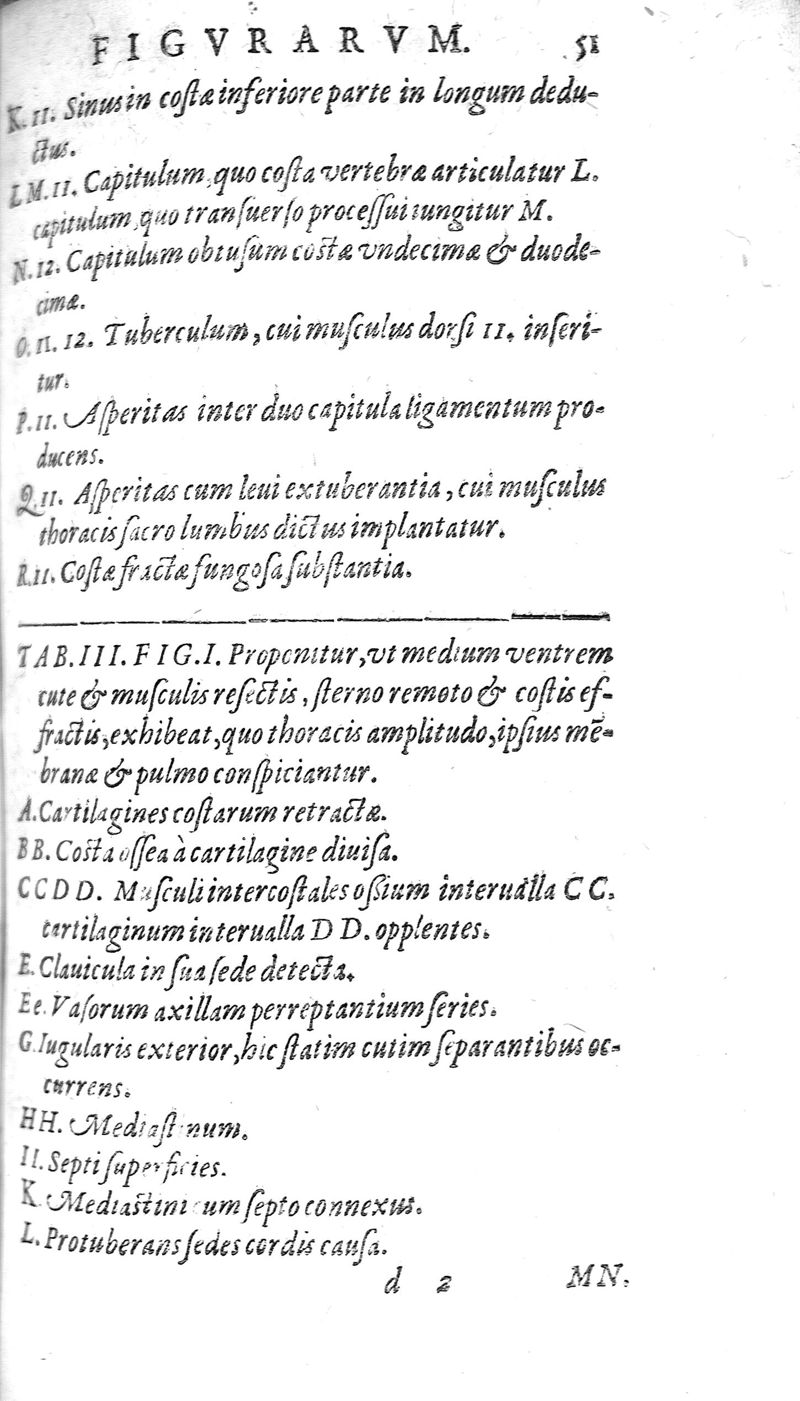 FIGVRARVM. 51
K. 11. Sinus in coſtæ inferiore parte in longum dedu-
ctus.
L M. 11. Capitulum, quo coſta vertebræ articulatur L.
capitulum, quo tranſuerſo proceſſui iungitur M.
N. 12. Capitulum obtuſum coſtæ vndecimæ & duode-
cimæ.
O. 11. 12. Tuberculum, cui muſculus dorſi 11. inſeri-
tur.
P. 11. Aſperitas inter duo capitula ligamentum pro-
ducens.
Q. 11. Aſperitas cum leui extuberantia, cui muſculus
thoracis ſacro lumbus dictus implantatur.
R. 11. Coſtæ fractæ fungoſa ſubſtantia.
TAB. III. FIG. I. Proponitur, vt medium ventrem
cute & muſculis reſectis, ſterno remoto & coſtis ef-
fractis, exhibeat, quo thoracis amplitudo, ipſius mē-
branæ & pulmo conſpiciantur.
A. Cartilagines coſtarum retractæ.
BB. Coſta oſſea à cartilagine diuiſa.
CCDD. Muſculi intercoſtales oſſium interualla CC.
cartilaginum interualla DD. opplentes.
E. Clauicula in ſua ſede detecta.
Ee. Vaſorum axillam perreptantium ſeries.
G. Iugularis exterior, hic ſtatim cutim ſeparantibus oc-
currens.
HH. Mediaſtinum.
II. Septi ſuperficies.
K. Mediaſtini cum ſepto connexus.
L. Protuberans ſedes cordis cauſa.
d 2 MN.